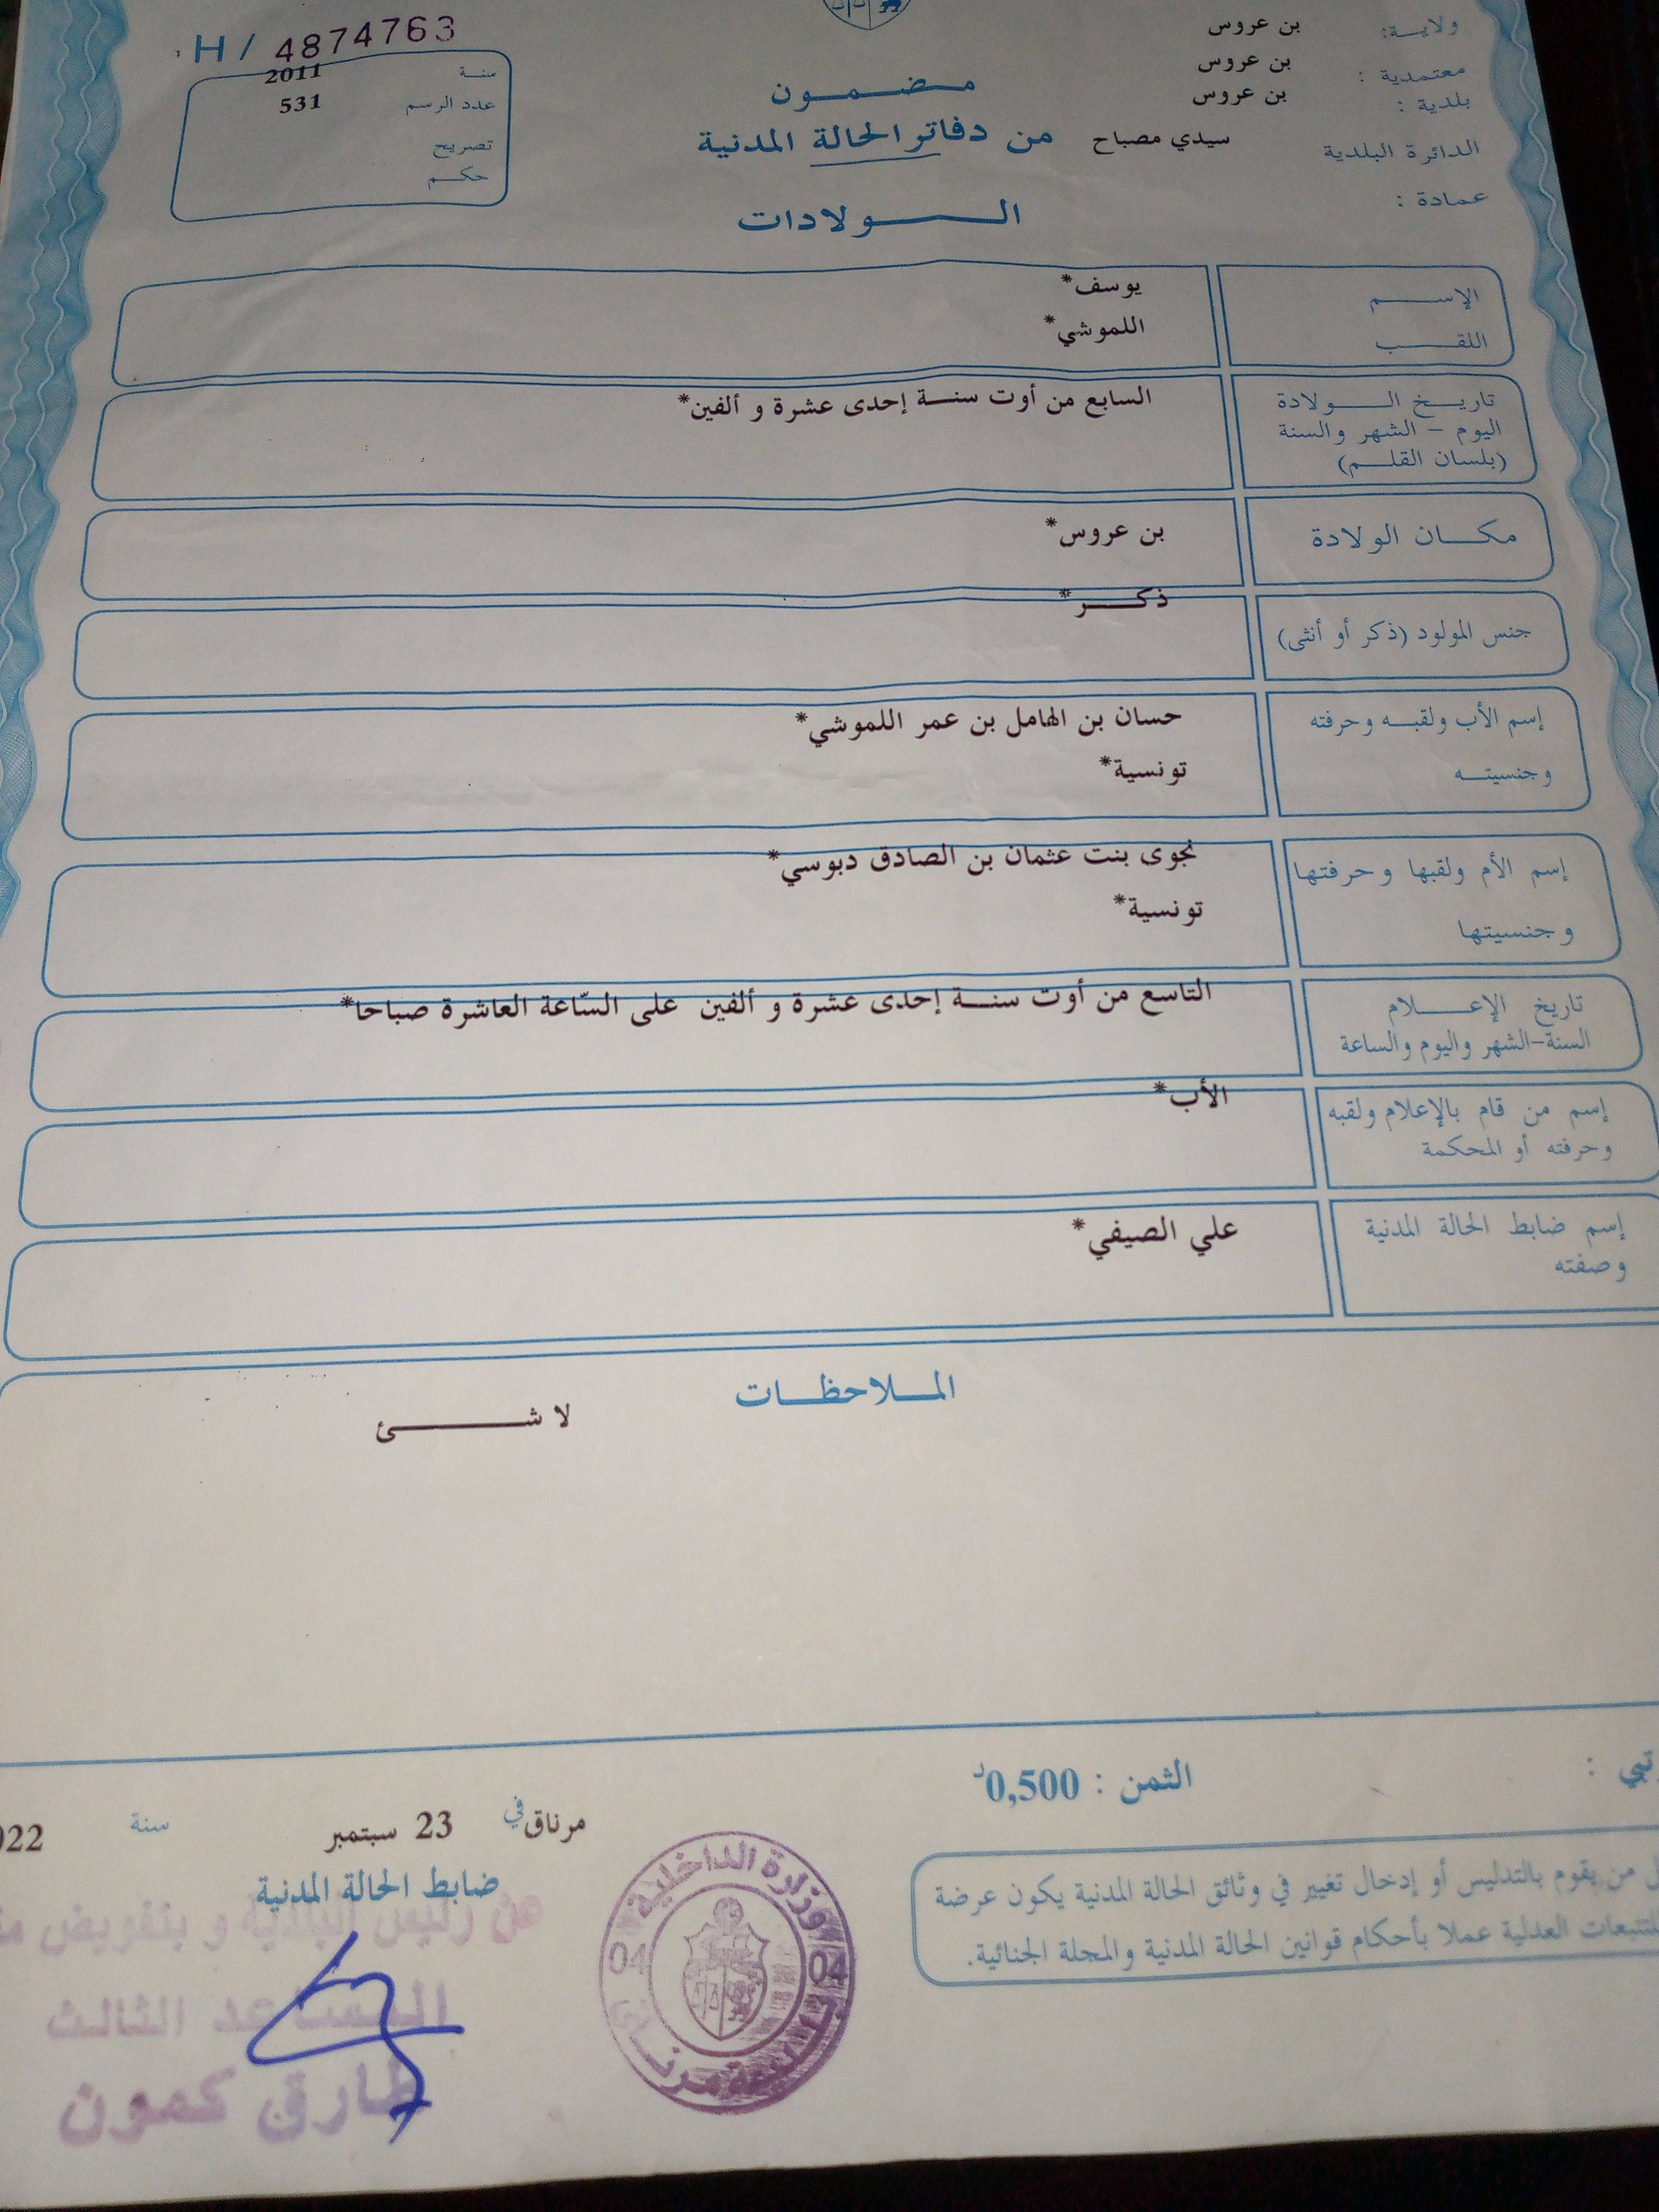 H / 4874763
سنة 2011
عدد الرسم 531
تصريح
حكم
مضمون
من دفاتر الحالة المدنية
الولادات
ولاية: بن عروس
معتمدية : بن عروس
بلدية : بن عروس
الدائرة البلدية سيدي مصباح
عمادة :
الإسم يوسف*
اللقب اللموشي*
تاريخ الولادة السابع من أوت سنة إحدى عشرة و ألفين*
اليوم - الشهر والسنة
(بلسان القلم)
مكان الولادة بن عروس*
جنس المولود (ذكر أو أنثى) ذكر*
إسم الأب ولقبه وحرفته حسان بن الهامل بن عمر اللموشي*
وجنسيته تونسية*
إسم الأم ولقبها وحرفتها نجوى بنت عثمان بن الصادق دبوسي*
وجنسيتها تونسية*
تاريخ الإعلام التاسع من أوت سنة إحدى عشرة و ألفين على السّاعة العاشرة صباحا*
السنة-الشهر واليوم والساعة
إسم من قام بالإعلام ولقبه الأب*
وحرفته أو المحكمة
إسم ضابط الحالة المدنية علي الصيفي*
وصفته
الملاحظات
لا شئ
الثمن : 0,500د
مرناق في 23 سبتمبر سنة 022
ضابط الحالة المدنية
عن رئيس البلدية و بتفويض
المساعد الثالث
طارق كمون
وزارة الداخلية
04 04
من يقوم بالتدليس أو إدخال تغيير في وثائق الحالة المدنية يكون عرضة
للتتبعات العدلية عملا بأحكام قوانين الحالة المدنية والمجلة الجنائية.